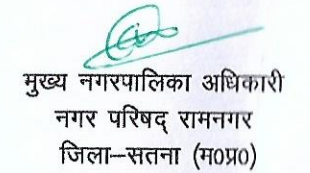 मुख्य नगरपालिका अधिकारी
नगर परिषद् रामनगर
जिला–सतना (म0प्र0)